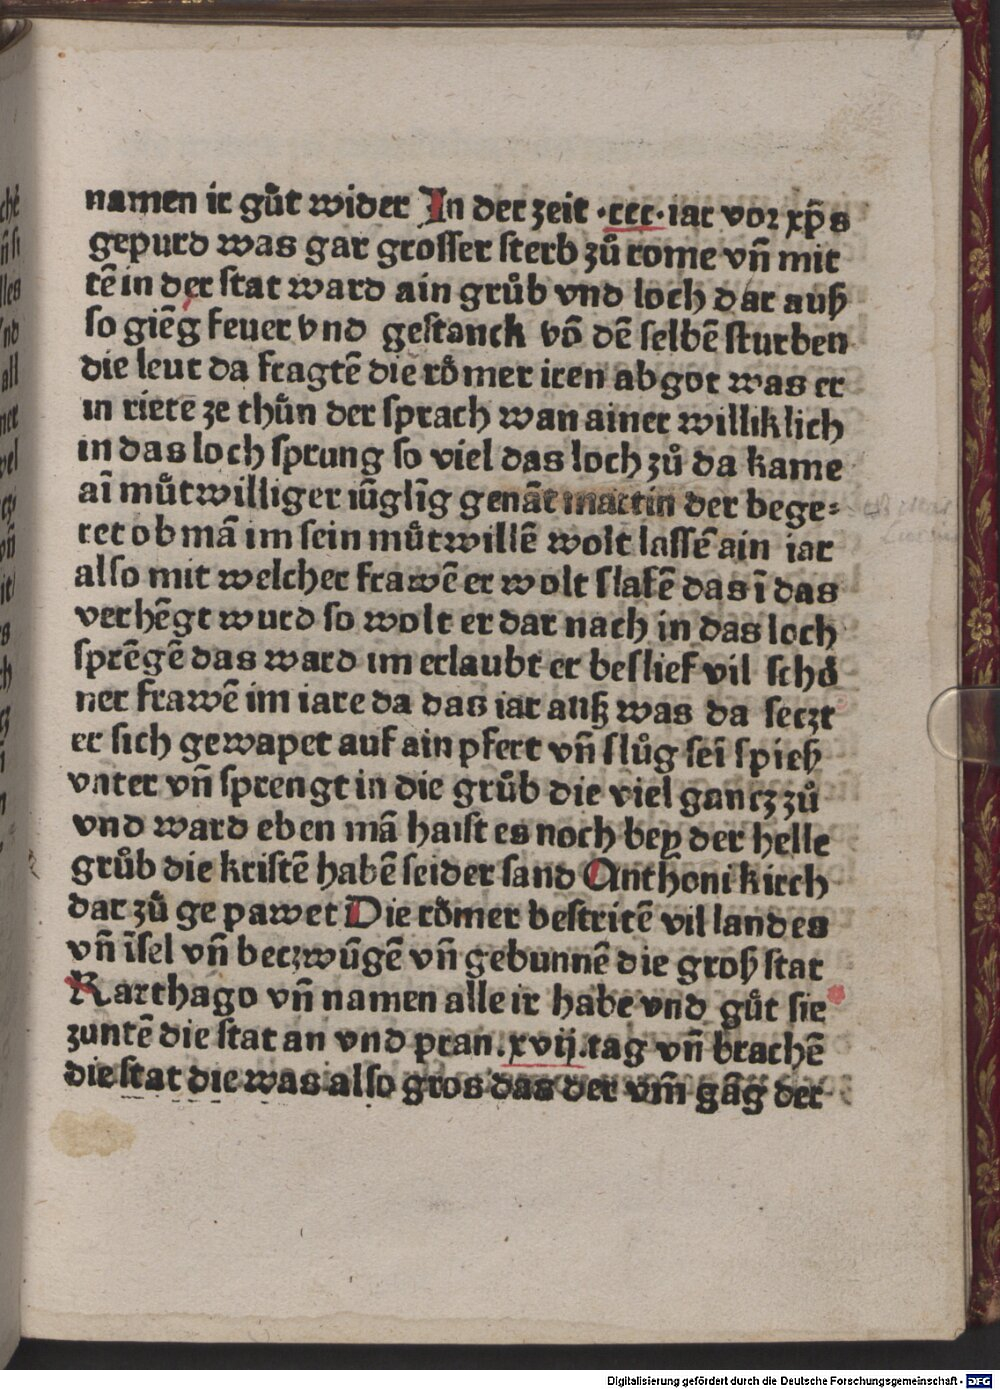 namen ir gůt wider In der zeit ·ccc·iar vor xp̄s
gepurd was gar grosser sterb zů rome vn̄ mit
tē in der stat ward ain grůb vnd loch dar auß
so giēg feuer vnd gestanck vō dē selbē sturben
die leut da fragtē die rőmer iren abgot was er
in rietē ze thůn der sprach wan ainer williklich
in das loch sprung so viel das loch zů da kame
aī můtwilliger iūglīg genāt martin der bege⸗
ret ob mā im sein můtwillē wolt lassē ain iar
also mit welcher frawē er wolt slafē das ī das
verhēgt wurd so wolt er dar nach in das loch
sprēgē das ward im erlaubt er beslief vil schő
ner frawē im iare da das iar auß was da seczt
er sich gewapet auf ain pfert vn̄ slůg seī spieß
vnter vn̄ sprengt in die grůb die viel gancz zů
vnd ward eben mā haist es noch bey der helle
grůb die kristē habē seider sand Anthoni kirch
dar zů ge pawet Die rőmer bestritē vil landes
vn̄ īsel vn̄ beczwūgē vn̄ gebunnē die groß stat
Karthago vn̄ namen alle ir habe vnd gůt sie
zuntē die stat an vnd pran.xvij.tag vn̄ brachē
die stat die was also gros das der vm̄ gāg der
Digitalisierung gefördert durch die Deutsche Forschungsgemeinschaft - DFG